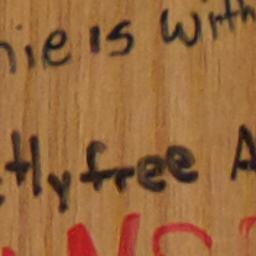 nie is with
tly free A